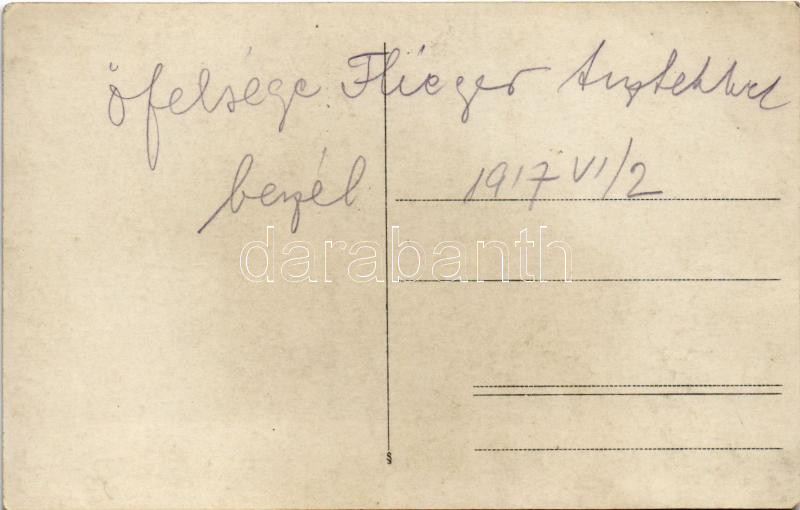 őfelsége Flieger tisztekkel
beszél 1917 VI/2
darabanth
§